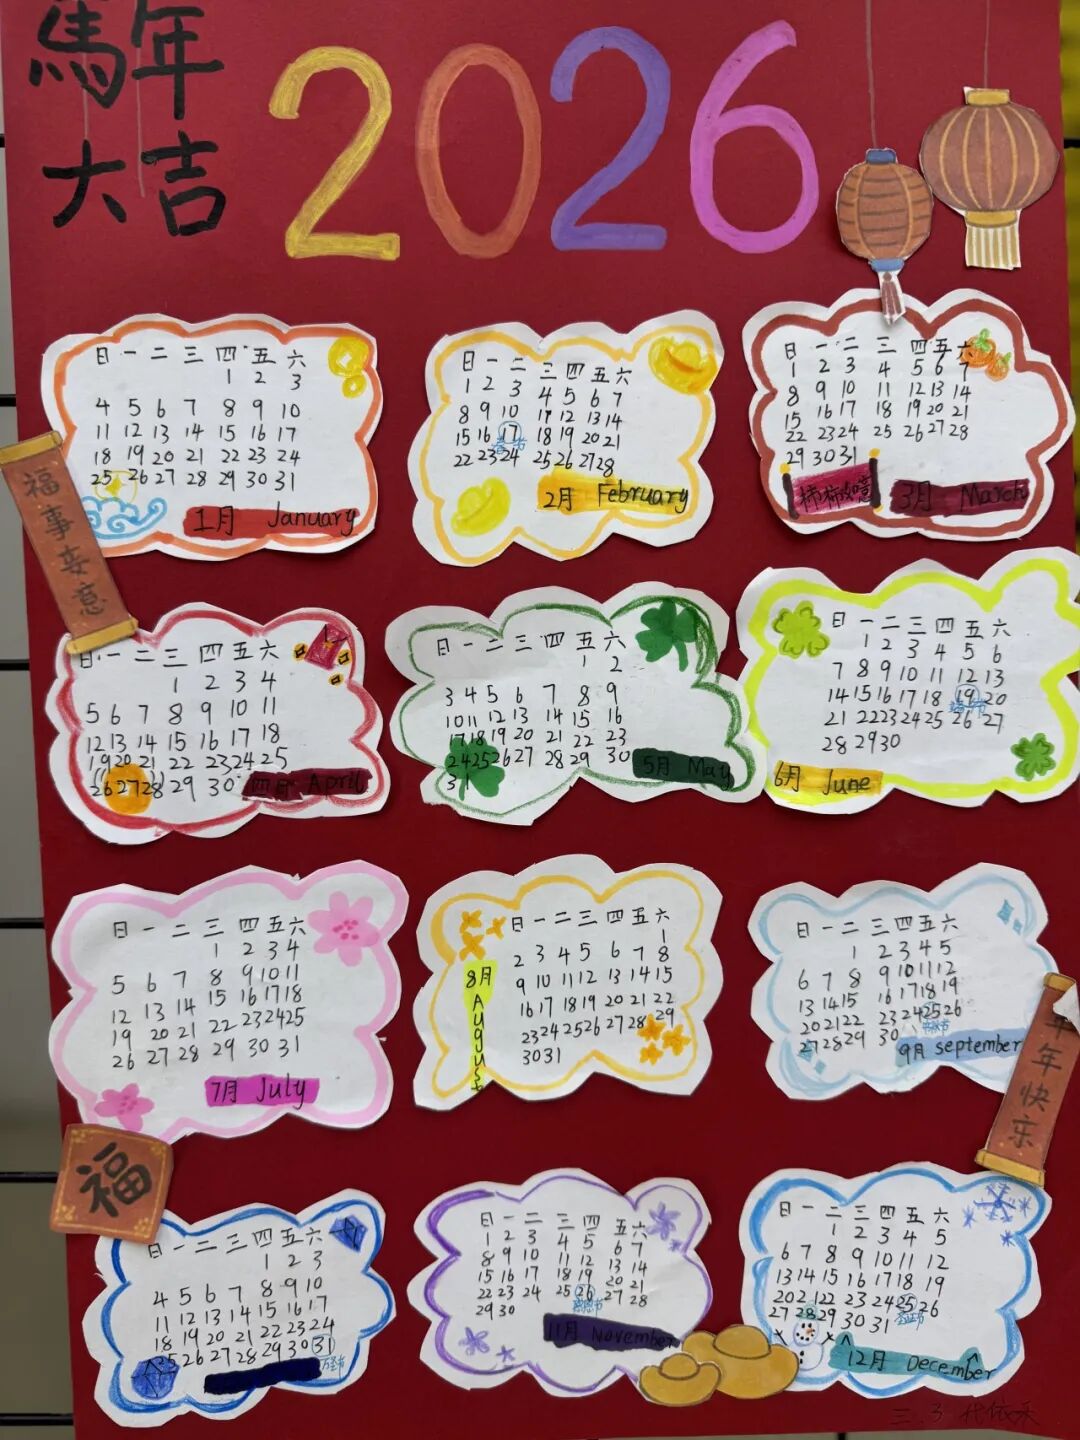 馬年
大吉
2026
日 一 二 三 四 五 六
1 2 3
4 5 6 7 8 9 10
11 12 13 14 15 16 17
18 19 20 21 22 23 24
25 26 27 28 29 30 31
1月 January
日 一 二 三 四 五 六
1 2 3 4 5 6 7
8 9 10 11 12 13 14
15 16 17 18 19 20 21
春节
22 23 24 25 26 27 28
2月 February
日 一 二 三 四 五 六
1 2 3 4 5 6 7
8 9 10 11 12 13 14
15 16 17 18 19 20 21
22 23 24 25 26 27 28
29 30 31
柿柿如意
3月 March
福事安意
日 一 二 三 四 五 六
1 2 3 4
5 6 7 8 9 10 11
12 13 14 15 16 17 18
19 20 21 22 23 24 25
26 27 28 29 30
四月 April
日 一 二 三 四 五 六
1 2
3 4 5 6 7 8 9
10 11 12 13 14 15 16
17 18 19 20 21 22 23
24 25 26 27 28 29 30
31
5月 May
日 一 二 三 四 五 六
1 2 3 4 5 6
7 8 9 10 11 12 13
14 15 16 17 18 19 20
端午节
21 22 23 24 25 26 27
28 29 30
6月 June
日 一 二 三 四 五 六
1 2 3 4
5 6 7 8 9 10 11
12 13 14 15 16 17 18
19 20 21 22 23 24 25
26 27 28 29 30 31
7月 July
日 一 二 三 四 五 六
1
2 3 4 5 6 7 8
9 10 11 12 13 14 15
16 17 18 19 20 21 22
23 24 25 26 27 28 29
30 31
8月 August
日 一 二 三 四 五 六
1 2 3 4 5
6 7 8 9 10 11 12
13 14 15 16 17 18 19
20 21 22 23 24 25 26
中秋节
27 28 29 30
9月 september
年年快乐
福
日 一 二 三 四 五 六
1 2 3
4 5 6 7 8 9 10
11 12 13 14 15 16 17
18 19 20 21 22 23 24
25 26 27 28 29 30 31
万圣节
日 一 二 三 四 五 六
1 2 3 4 5 6 7
8 9 10 11 12 13 14
15 16 17 18 19 20 21
22 23 24 25 26 27 28
感恩节
29 30
11月 November
日 一 二 三 四 五 六
1 2 3 4 5
6 7 8 9 10 11 12
13 14 15 16 17 18 19
20 21 22 23 24 25 26
圣诞节
27 28 29 30 31
12月 December
三.3